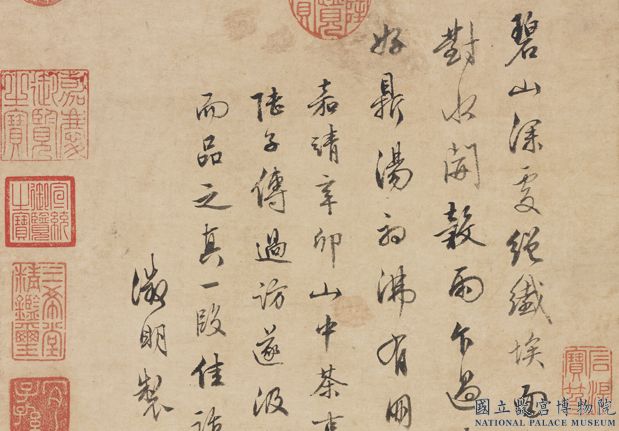 碧山深處絕纖埃面
對水開穀雨乍過
好鼎湯初沸有朋
嘉靖辛卯山中茶事
陸子傳過訪遂汲
而品之真一段佳話
徵明製
嘉慶
御覽
之寶
宣統
御覽
之寶
三希堂
精鑑璽
國立故宮博物院
NATIONAL PALACE MUSEUM